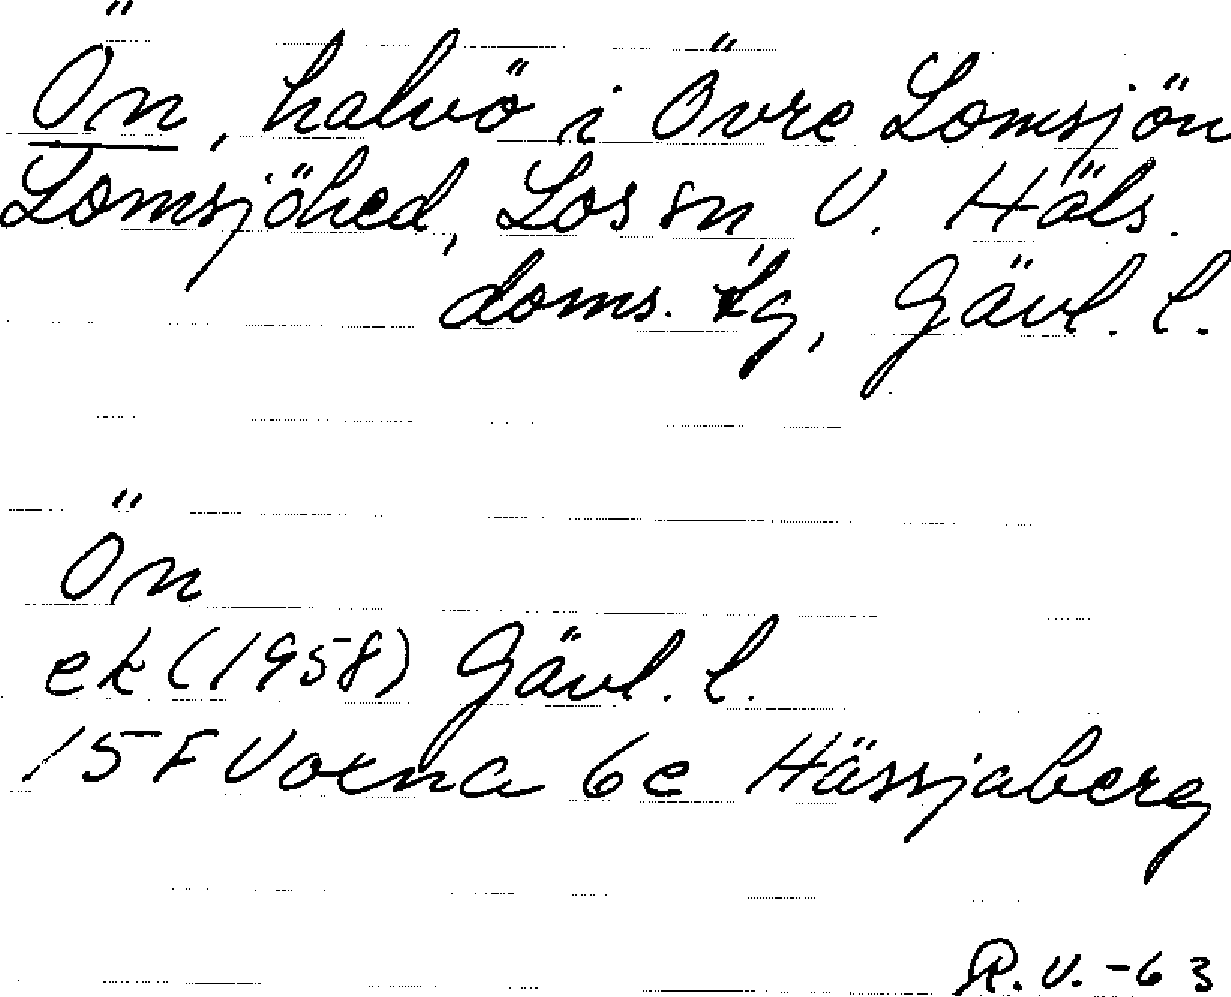 Ön, halvö i Övre Lomsjön
Lomsjöhed, Los sn, V. Häls.
doms. tg, Gävl. l.
Ön
ek (1958) Gävl. l.
15F Voxna 6e Hässjaberg
R.V.-63